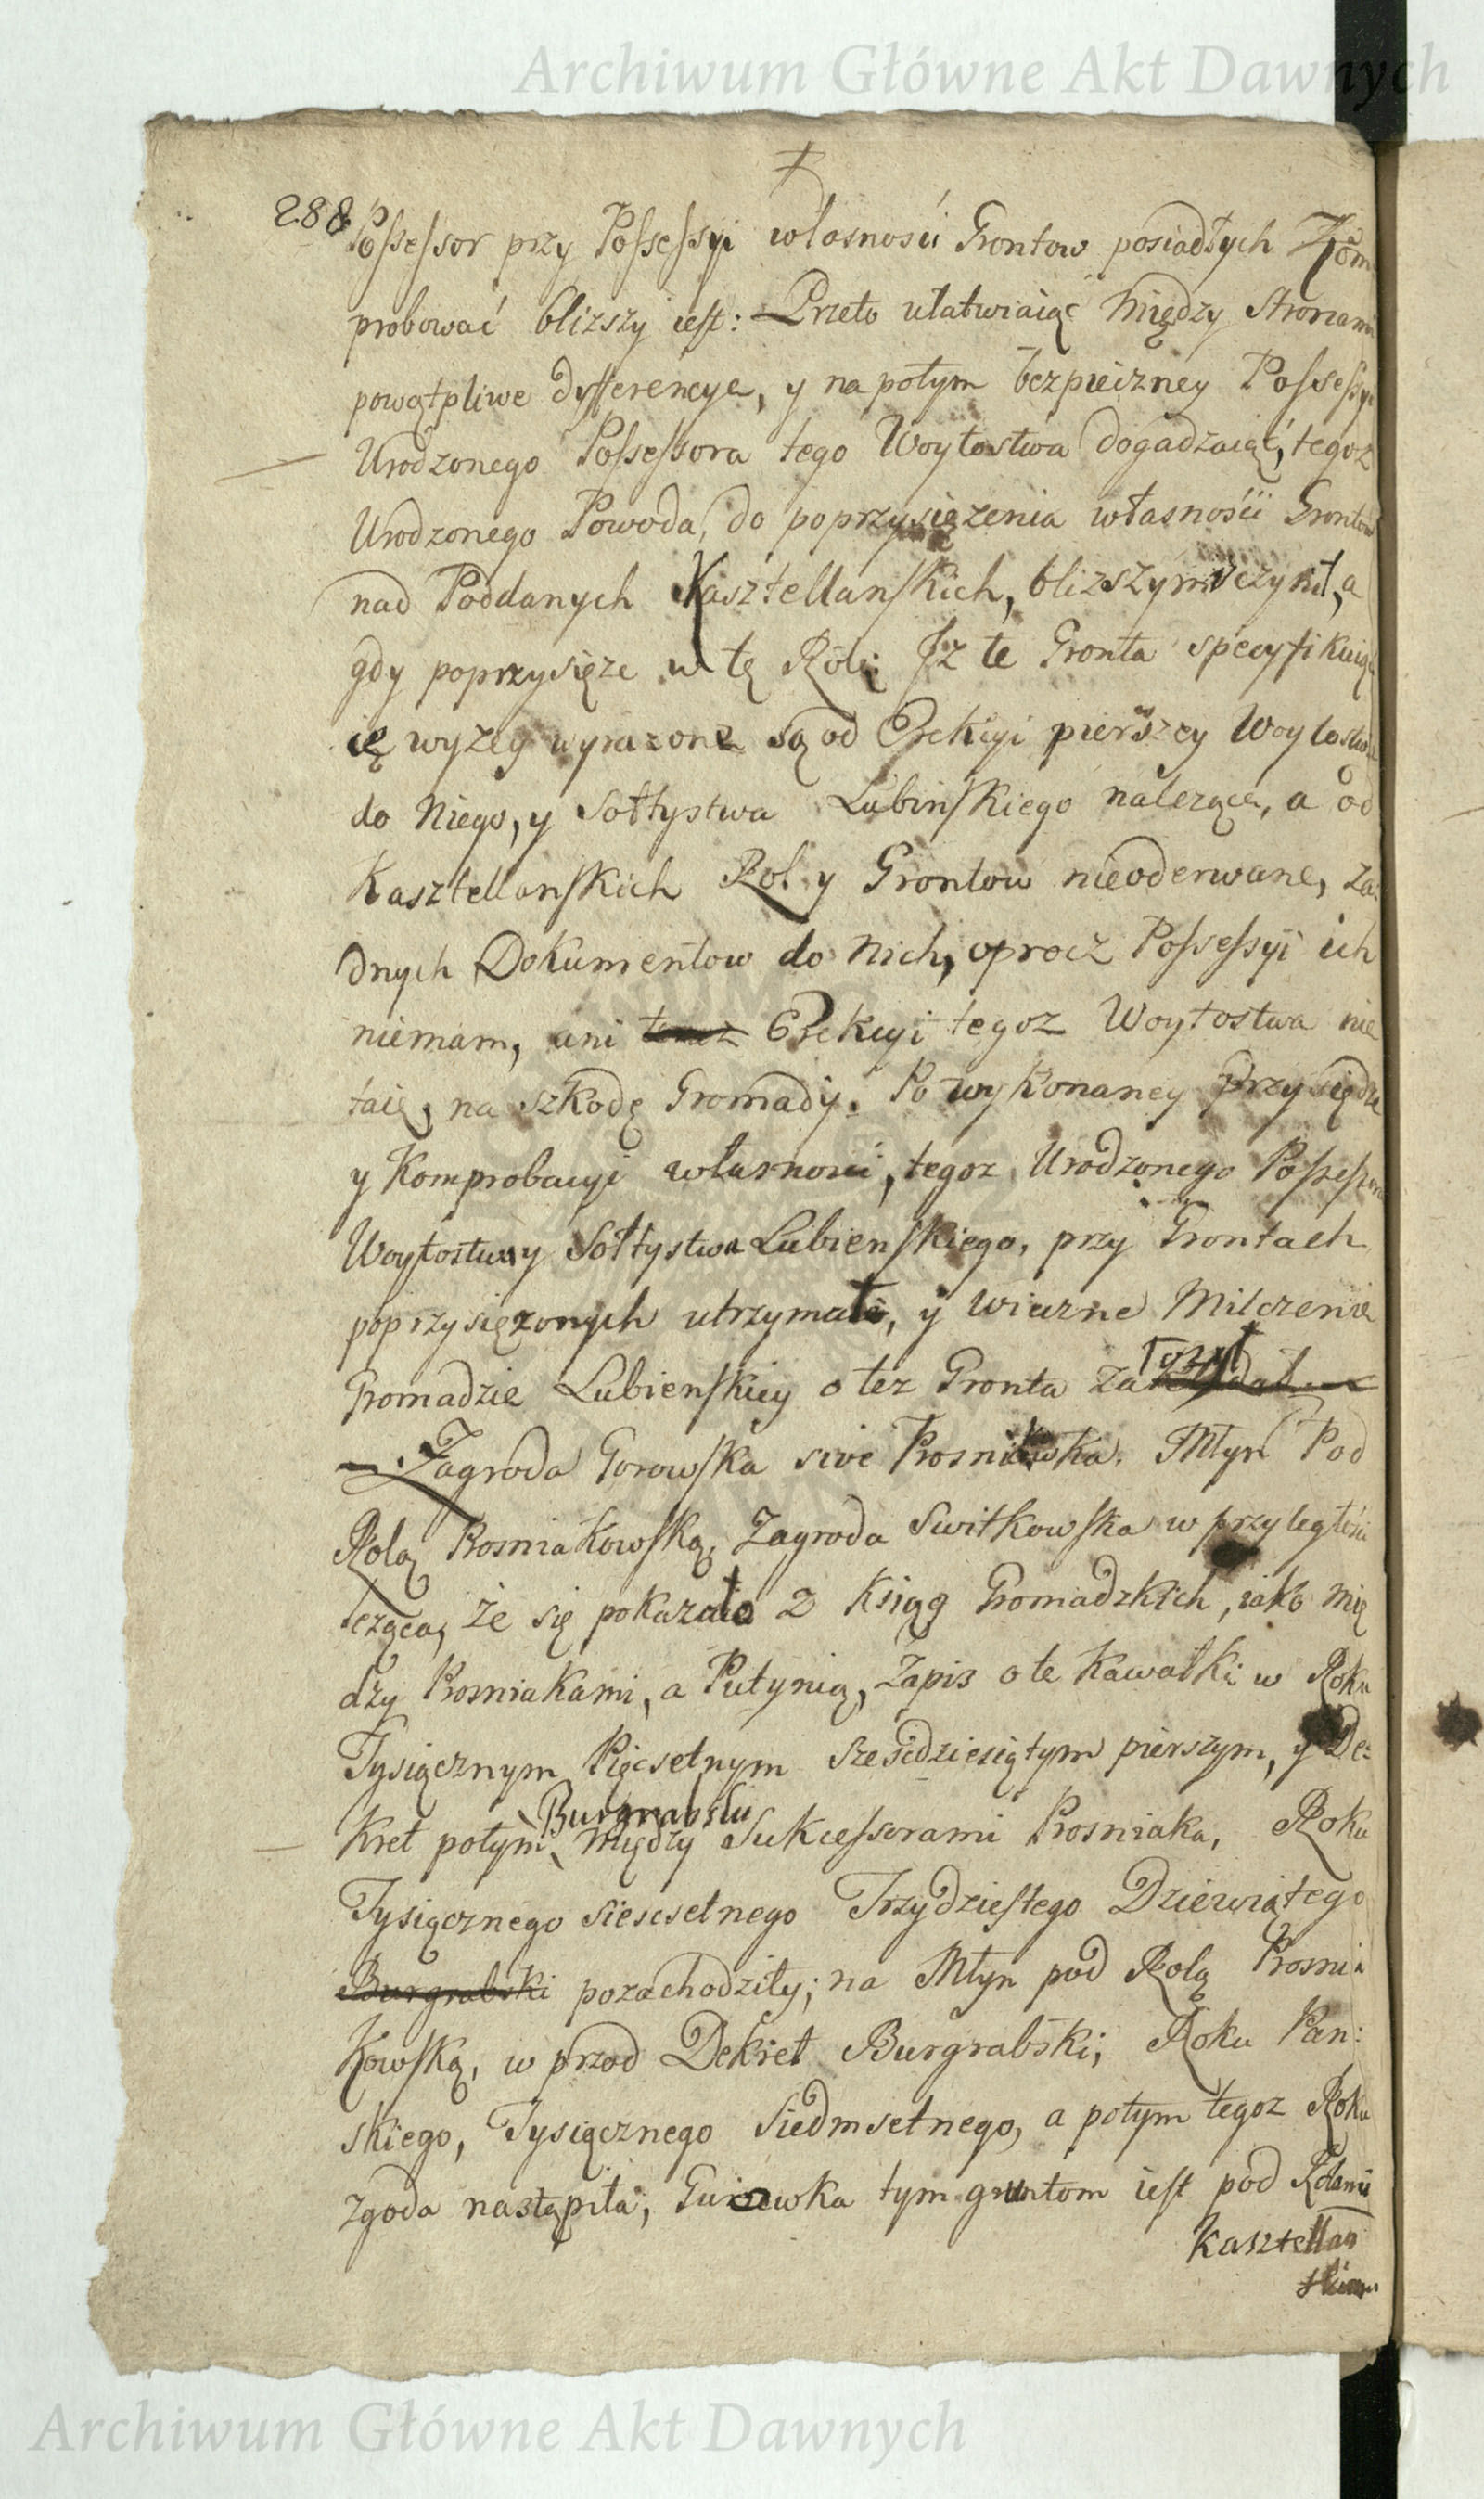 Archiwum Główne Akt Dawnych
288
Possessor przy Possessyi własnosći Grontow posiadłych Kom
probować blizszy iest: Przeto ułatwiaiąc między Stronami
powątpliwe dyfferencye, y na potym bezpieczney Possessyi
Urodzonego Possessora tego Woytostwa dogadzaiąć, tegoz
Urodzonego Powoda, do poprzysięzenia własnośći Grontow
nad Poddanych Kasztellanskich, blizszym uczynił, a
gdy poprzysięze w tę Rotę: Jz te Gronta specyfikuią
ię wyzey wyrazone są od Erekcyi pierszey Woytostwa
do Niego, y Sołtystwa Lubinskiego nalezące, a od
Kasztellanskich Rol y Grontow nieoderwane, za:
dnych Dokumentow do Nich, oprocz Possessyi ich
niemam, ani Erekcyi tegoz Woytostwa nie
taię, na szkodę Gromady. Po wykonaney Przysiędze
y Komprobacyi własnosci, tegoz Urodzonego Possessora
Woytostwa y Sołtystwa Lubienskiego, przy Grontach
poprzysięzonych utrzymała, y wieczne Milczenie
Gromadzie Lubienskiey o tez Gronta założył
Zagroda Gorowska sive Prosniakowska. Młyn Pod
Rolą Prosniakowską, Zagroda Switkowska w przyległosci
lezącą, że się pokazało z Ksiąg Gromadzkich, iako mię
dzy Prosniakami, a Putynią, Zapis o te Kawałki w Roku
Tysiącznym Pięcsetnym Sześćdziesiątym pierszym, y De:
Burgrabski
kret potym między Sukcessorami Prosniaka, Roku
Tysiącznego Siescsetnego Trzydziestego Dziewiątego
Burgrabski pozachodziły; na Młyn pod Rolą Prosnia
kowską, w przod Dekret Burgrabski, Roku Pan:
skiego, Tysiącznego Siedmsetnego, a potym tegoz Roku
zgoda nastąpiła; tym gruntom iest pod Rolami
Kasztellan
skiemi
Archiwum Główne Akt Dawnych